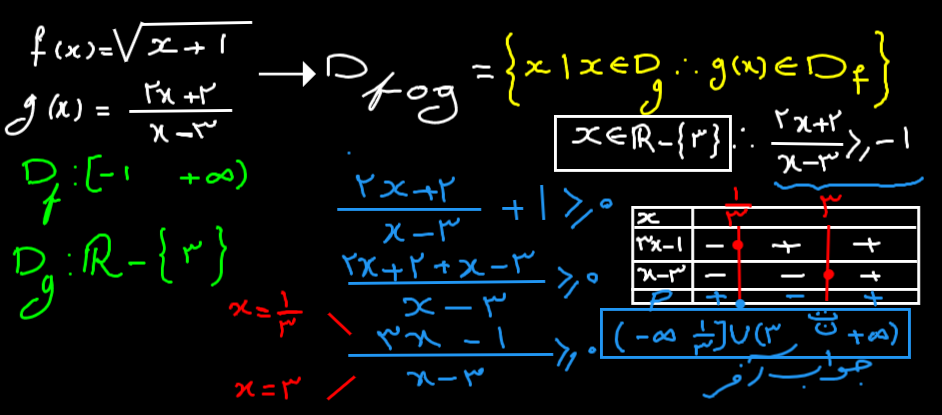 f(x)=√x+1
g(x) = ۲x+۲ / x-۳
→ D_fog = {x | x∈D_g ∴ g(x)∈D_f}
x∈ℝ-{۳} ∴ ۲x+۲ / x-۳ ≥ -۱
D_f : [-۱ +∞)
D_g : ℝ-{۳}
۲x+۲ / x-۳ + ۱ ≥ ۰
۲x+۲+x-۳ / x-۳ ≥ ۰
۳x-۱ / x-۳ ≥ ۰
x=۱/۳
x=۳
x ۱/۳ ۳
۳x-۱ - + +
x-۳ - - +
P + - +
(-∞ ۱/۳]∪(۳ +∞)
جواب آخر